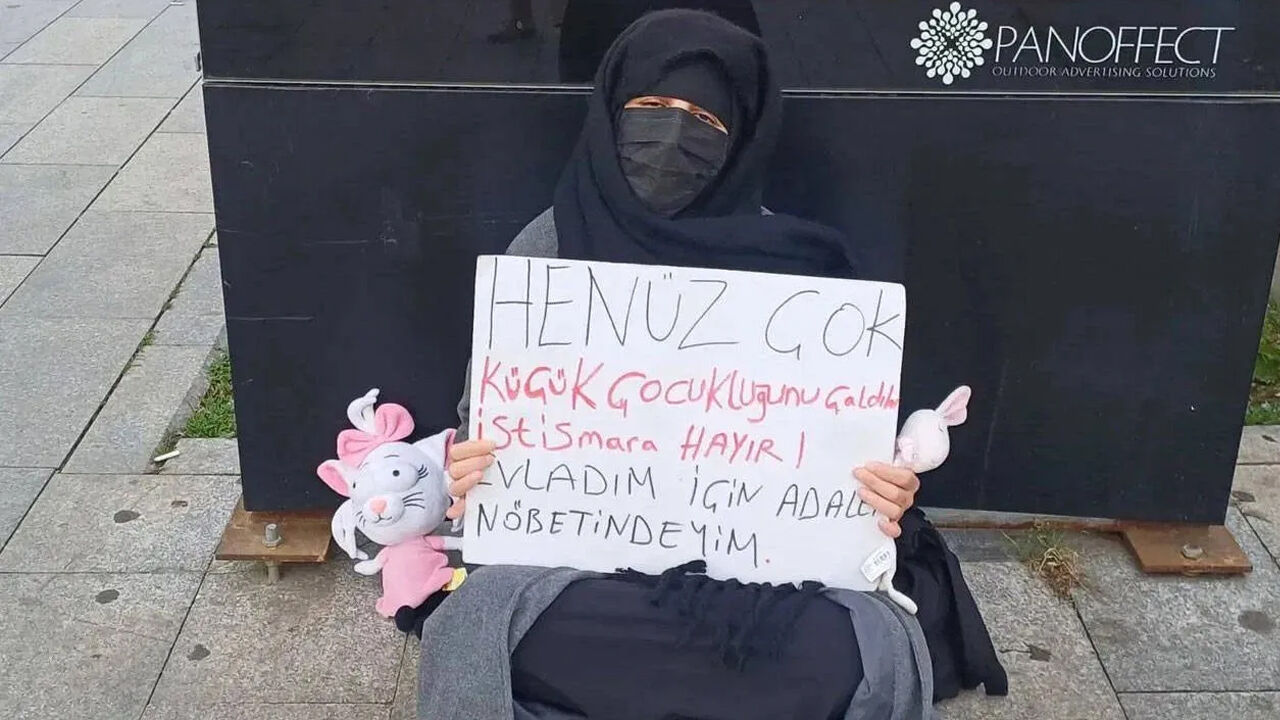 PANOFFECT
OUTDOOR ADVERTISING SOLUTIONS
HENÜZ ÇOK
KÜÇÜK ÇOCUKLUğUNU ÇALDILAR
İSTİSMARA HAYIR!
EVLADIM İÇİN ADALET
NÖBETİNDEYİM.